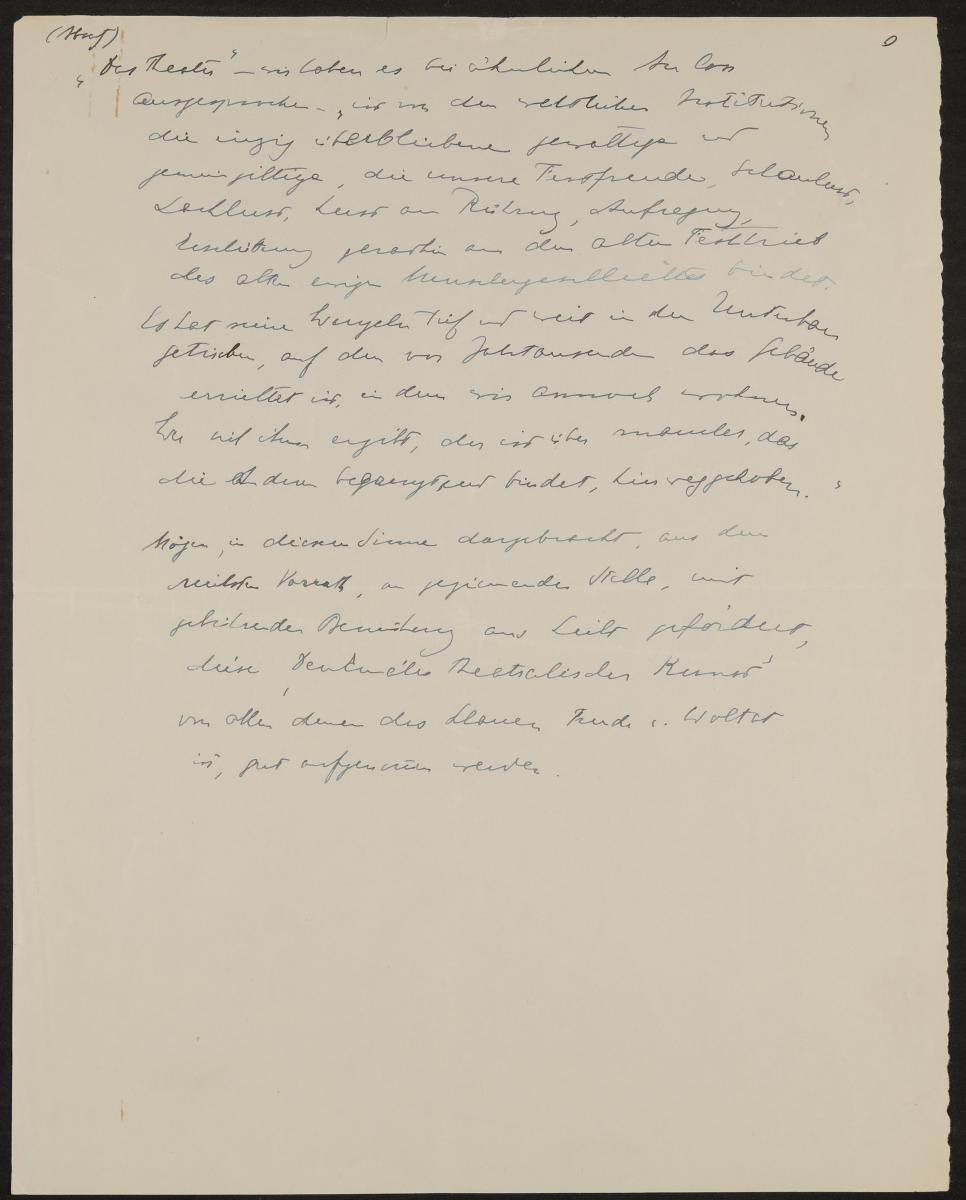 "Das Theater" – wir haben es bei ähnlichem Anlass
ausgesprochen – "ist von den weltlichen Institutionen
die einzig überbliebene gewaltige und
gemeingiltige, die unsere Festfreude, Schaulust,
Lachlust, Lust an Rührung, Aufregung,
geradhin an den alten Festtrieb
des alten ewigen Menschengeschlechtes bindet.
Es hat seine Wurzeln tief und weit in den Unterbau
getrieben, auf dem vor Jahrtausenden das Gebäude
errichtet ist, in dem wir annoch wohnen.
Wer sich ihm ergibt, der ist über manches, das
die Andern begrenzt und bindet, hinweggehoben."
Mögen, in diesem Sinne dargebracht, aus dem
reichsten Vorrath, an geziemender Stelle, mit
gebührender Bemühung ans Licht gefördert,
diese "Denkmäler theatralischer Kunst"
von allen denen das Schauen Freude u. Wohltat
ist, gut aufgenommen werden.